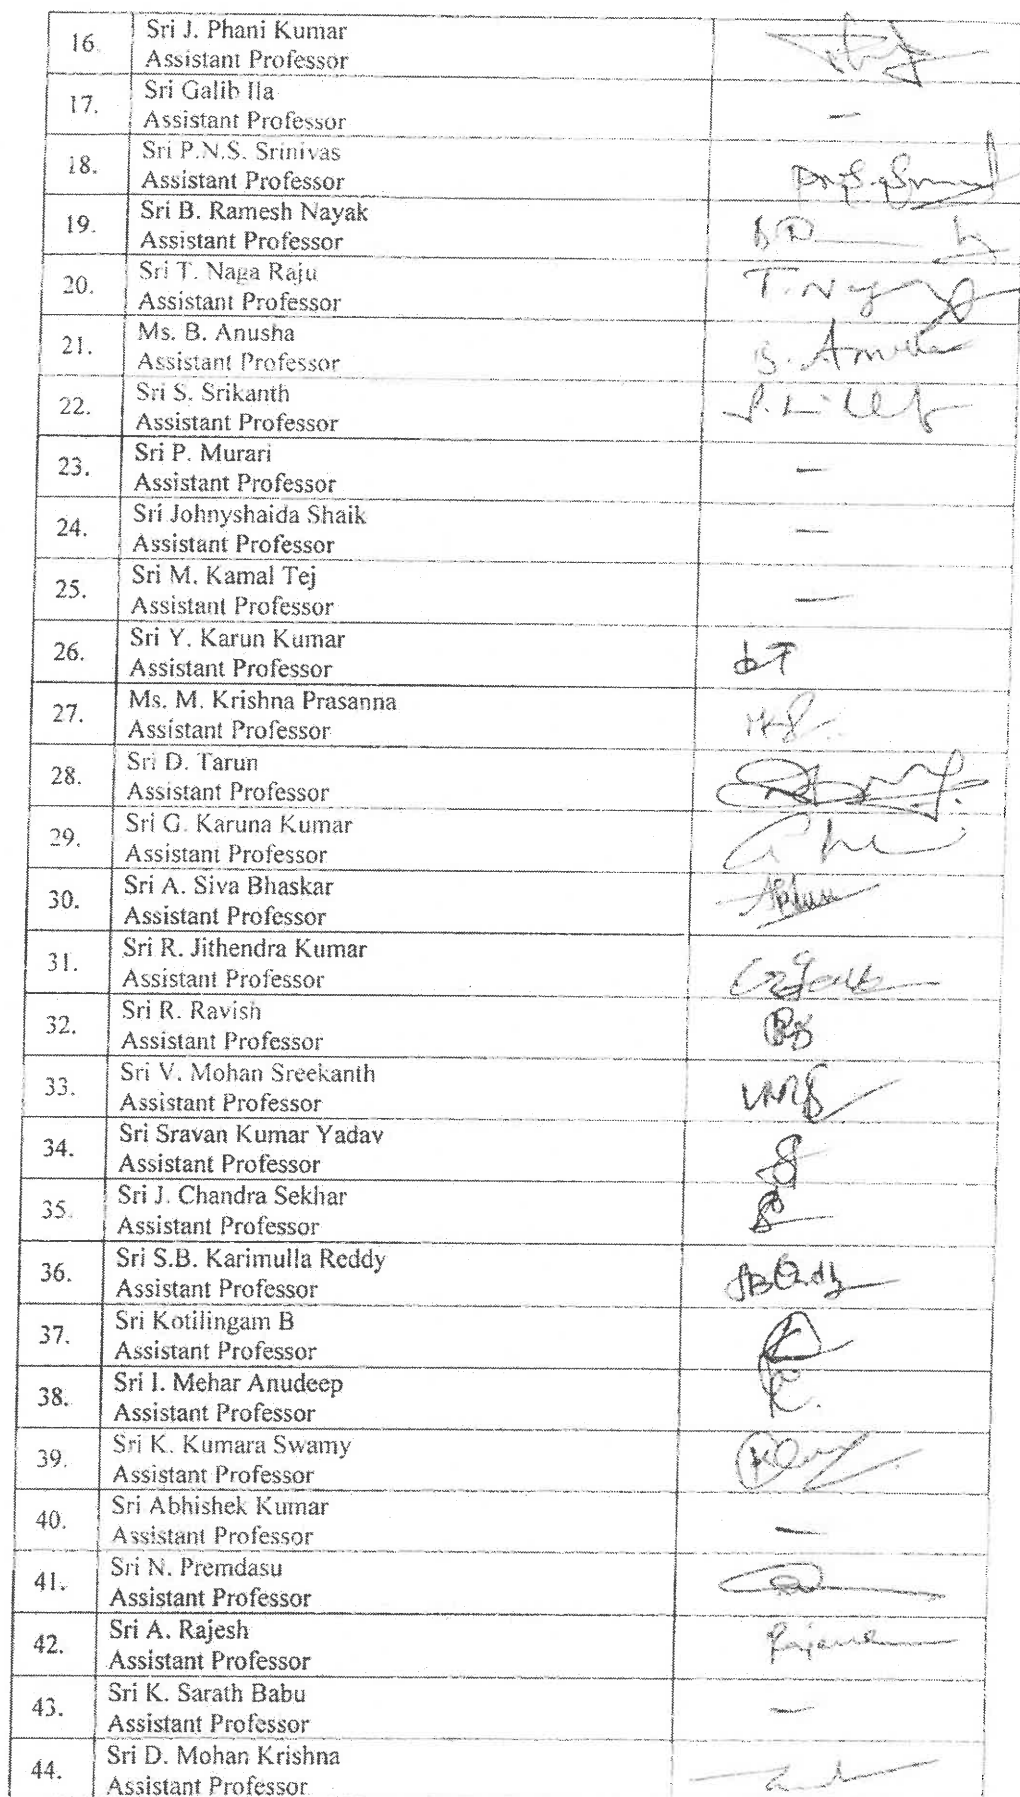 16. Sri J. Phani Kumar
Assistant Professor
17. Sri Galib Ila
Assistant Professor –
18. Sri P.N.S. Srinivas
Assistant Professor
19. Sri B. Ramesh Nayak
Assistant Professor
20. Sri T. Naga Raju
Assistant Professor
21. Ms. B. Anusha
Assistant Professor
22. Sri S. Srikanth
Assistant Professor
23. Sri P. Murari
Assistant Professor –
24. Sri Johnyshaida Shaik
Assistant Professor –
25. Sri M. Kamal Tej
Assistant Professor –
26. Sri Y. Karun Kumar
Assistant Professor
27. Ms. M. Krishna Prasanna
Assistant Professor
28. Sri D. Tarun
Assistant Professor
29. Sri G. Karuna Kumar
Assistant Professor
30. Sri A. Siva Bhaskar
Assistant Professor
31. Sri R. Jithendra Kumar
Assistant Professor
32. Sri R. Ravish
Assistant Professor
33. Sri V. Mohan Sreekanth
Assistant Professor
34. Sri Sravan Kumar Yadav
Assistant Professor
35. Sri J. Chandra Sekhar
Assistant Professor
36. Sri S.B. Karimulla Reddy
Assistant Professor
37. Sri Kotilingam B
Assistant Professor
38. Sri I. Mehar Anudeep
Assistant Professor
39. Sri K. Kumara Swamy
Assistant Professor
40. Sri Abhishek Kumar
Assistant Professor –
41. Sri N. Premdasu
Assistant Professor
42. Sri A. Rajesh
Assistant Professor
43. Sri K. Sarath Babu
Assistant Professor –
44. Sri D. Mohan Krishna
Assistant Professor